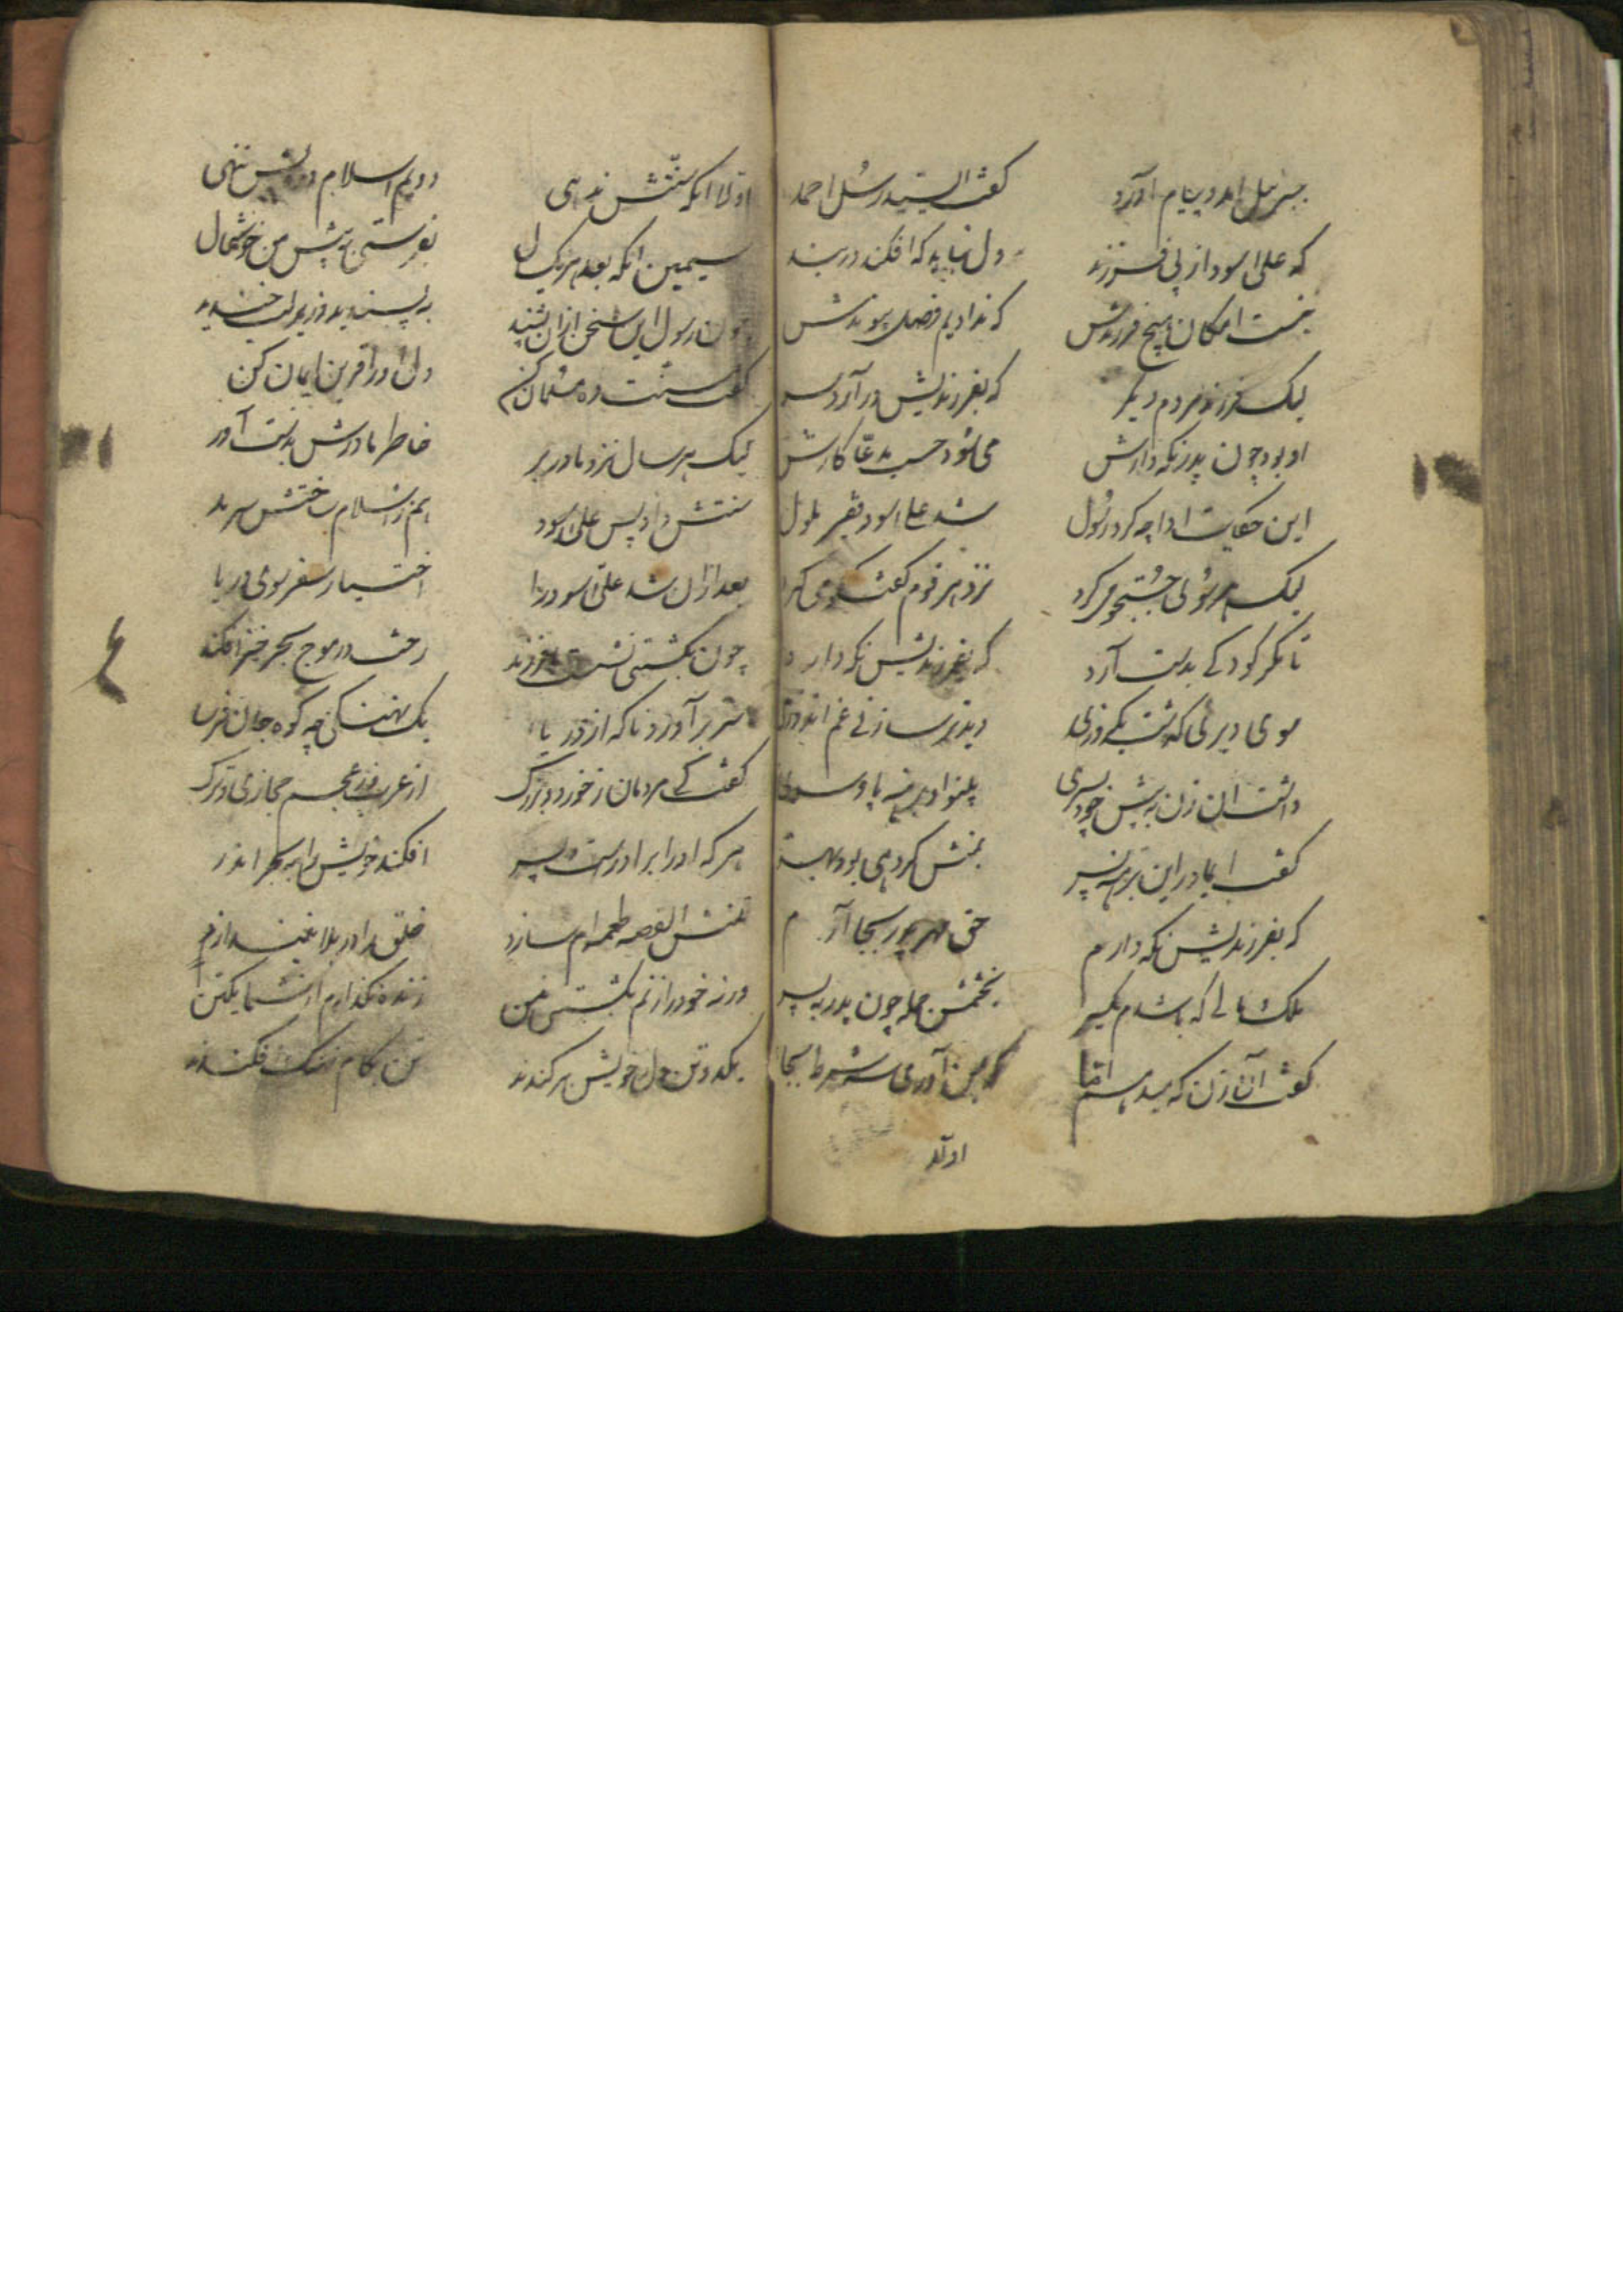 جبرئیل امد و پیام اورد گفت ای سید رسل احمد
که علی اسود از پی فرزند دل نباید که افکند در بند
نیست امکان هیچ فرزندش که ندادیم فصل پیوندش
لیک فرزند مردم دیگر که بفرزندیش در آرد سر
او بود چون پدر نکه دارش می شود حسب مدعا کارش
این حکایت ادا چه کرد رسول شد علی اسود فقیر ملول
لیک هر سوئی جستجو می کرد نزد هر قوم گفتگو می کرد
تا مگر کودکی بدست آرد که بفرزندیش نکه دارد
سوی دیری گذشت یکروزی دید ترسا زنی غم اندوزی
داشت ان زن به پیش خود پسری پهلو او برهنه پا و سری
گفت ای مادر این برهنه پسر بمنش کر دهی بود بهتر
که بفرزندیش نکه دارم حق مهر پدر بجا آرم
ملک و مالی که باشدم یکسر بخشمش جمله چون پدر به پسر
گفت آن زن که میدهم اما کر بمن آوری سه شرط بجا
اولا
اولا انکه سنتش ندهی دویم اسلام در برش ننهی
سیمین انکه بعد هر یک سال بفرستی به پیش من خوشحال
چون رسول این سخن ازان بشنید به پسندید و زیر لب خندید
گفت سنت ده و مسلمان کن دل او را قرین ایمان کن
لیک هر سال نزد مادر بر خاطر مادرش بدست آور
سنتش داد پس علی اسود هم ز اسلام ساختش سرمد
بعد ازان شد علی اسود را اختیار سفر سوی دریا
چون بکشتی نشست با فرزند رخت در موج بحر خیز افکند
سر بر آورد ناکه از دریا یک نهنگی چه کوه جان فرسا
گفت کی مردمان ز خورد و بزرگ از عرب وز عجم حجازی و ترک
هر که او را برادرست و پسر افکند خویش را به بحر اندر
تنش القصه طعمه ام سازد خلق را در بلا نیندازد
ورنه خود را زنم بکشتی من زنده نگذارم از شما یکتن
یکدو تن دل ز خویش بر کندند تن بکام نهنگ افکندند